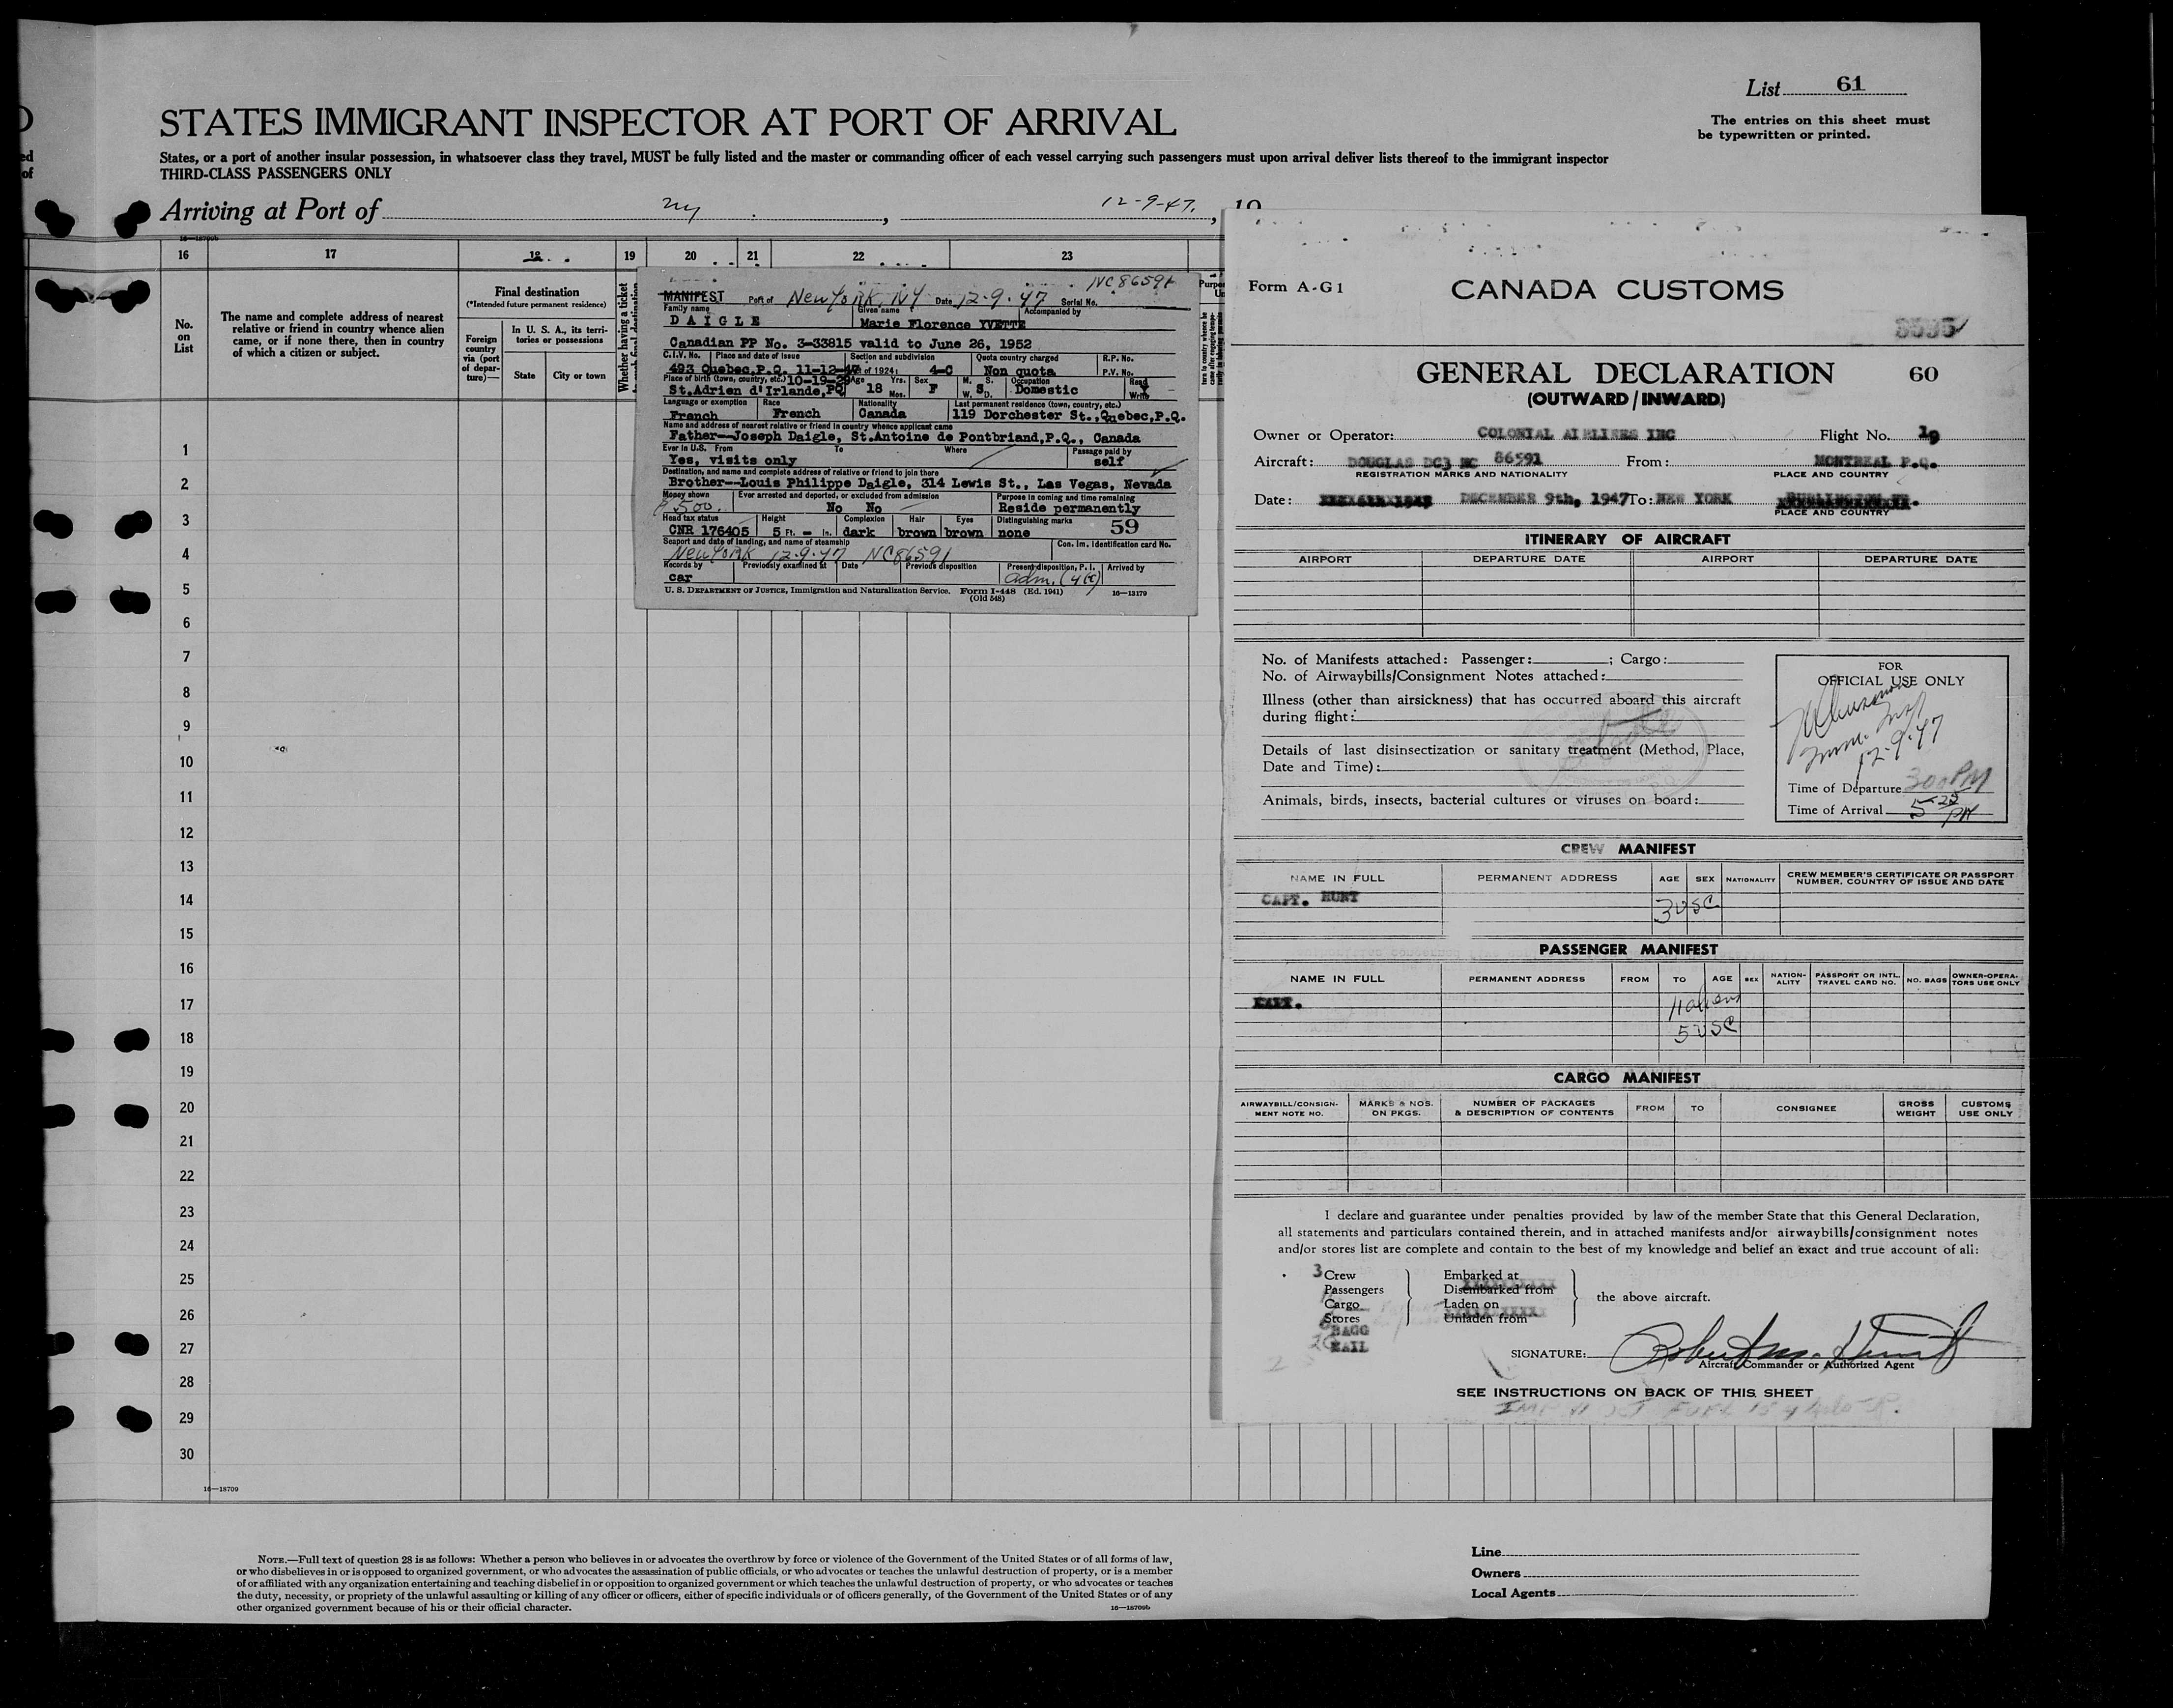 List 61
STATES IMMIGRANT INSPECTOR AT PORT OF ARRIVAL
The entries on this sheet must
be typewritten or printed.
States, or a port of another insular possession, in whatsoever class they travel, MUST be fully listed and the master or commanding officer of each vessel carrying such passengers must upon arrival deliver lists thereof to the immigrant inspector
THIRD-CLASS PASSENGERS ONLY
Arriving at Port of ny, 12-9-47, 19
16 17 18 19 20 21 22 23
No. on List
The name and complete address of nearest
relative or friend in country whence alien
came, or if none there, then in country
of which a citizen or subject.
Final destination
(*Intended future permanent residence)
Foreign country via (port of depar-ture)—
In U. S. A., its terri-
tories or possessions
State City or town
Whether having a ticket
NC86591
MANIFEST Port of New York, NY Date 12-9-47 Serial No.
Family name Given name Accompanied by
DAIGLE Marie Florence YVETTE
Canadian PP No. 3-33815 valid to June 26, 1952
C.I.V. No. Place and date of issue Section and subdivision of 1924: Quota country charged R.P. No.
493 Quebec,P.Q. 11-12-47 4-C Non quota P.V. No.
Place of birth (town, country, etc.) 10-19-29 Age 18 Yrs. Mos. Sex F M. S. W. D. S Occupation Read Write
St.Adrien d'Irlande,PQ Domestic
Language or exemption Race Nationality Last permanent residence (town, country, etc.)
French French Canada 119 Dorchester St.,Quebec,P.Q.
Name and address of nearest relative or friend in country whence applicant came
Father--Joseph Daigle, St.Antoine de Pontbriand,P.Q., Canada
Ever in U.S. From To Where Passage paid by
Yes, visits only self
Destination, and name and complete address of relative or friend to join there
Brother--Louis Philippe Daigle, 314 Lewis St., Las Vegas, Nevada
Money shown Ever arrested and deported, or excluded from admission Purpose in coming and time remaining
500. No No Reside permanently
Head tax status Height Complexion Hair Eyes Distinguishing marks 59
CNR 176405 5 Ft. - In. dark brown brown none
Seaport and date of landing, and name of steamship Con. Im. Identification card No.
New York 12-9-47 NC86591
Records by Previously examined at Date Previous disposition Present disposition, P. I. Arrived by
car adm.
U. S. DEPARTMENT OF JUSTICE, Immigration and Naturalization Service. Form I-448 (Ed. 1941) 16—13179
(Old 548)
1
2
3
4
5
6
7
8
9
10
11
12
13
14
15
16
17
18
19
20
21
22
23
24
25
26
27
28
29
30
16—18709
NOTE.—Full text of question 28 is as follows: Whether a person who believes in or advocates the overthrow by force or violence of the Government of the United States or of all forms of law,
or who disbelieves in or is opposed to organized government, or who advocates the assassination of public officials, or who advocates or teaches the unlawful destruction of property, or is a member
of or affiliated with any organization entertaining and teaching disbelief in or opposition to organized government or which teaches the unlawful destruction of property, or who advocates or teaches
the duty, necessity, or propriety of the unlawful assaulting or killing of any officer or officers, either of specific individuals or of officers generally, of the Government of the United States or of any
other organized government because of his or their official character.
16—18709b
Line
Owners
Local Agents
Form A-G1
CANADA CUSTOMS
GENERAL DECLARATION 60
(OUTWARD / INWARD)
Owner or Operator: COLONIAL AIRLINES INC Flight No. 19
Aircraft: DOUGLAS DC3 NC 86591 From: MONTREAL P.Q.
REGISTRATION MARKS AND NATIONALITY PLACE AND COUNTRY
Date: DECEMBER 9th, 1947 To: NEW YORK
PLACE AND COUNTRY
ITINERARY OF AIRCRAFT
AIRPORT DEPARTURE DATE AIRPORT DEPARTURE DATE
No. of Manifests attached: Passenger: ; Cargo:
No. of Airwaybills/Consignment Notes attached:
Illness (other than airsickness) that has occurred aboard this aircraft
during flight:
Details of last disinsectization or sanitary treatment (Method, Place,
Date and Time):
Animals, birds, insects, bacterial cultures or viruses on board:
FOR
OFFICIAL USE ONLY
12-9-47
Time of Departure 300 PM
Time of Arrival 5 22 PM
CREW MANIFEST
NAME IN FULL PERMANENT ADDRESS AGE SEX NATIONALITY CREW MEMBER'S CERTIFICATE OR PASSPORT NUMBER, COUNTRY OF ISSUE AND DATE
CAPT. HUNT
3 USC
PASSENGER MANIFEST
NAME IN FULL PERMANENT ADDRESS FROM TO AGE SEX NATION-ALITY PASSPORT OR INTL. TRAVEL CARD NO. NO. BAGS OWNER-OPERA-TORS USE ONLY
11 alien
5 USC
CARGO MANIFEST
AIRWAYBILL/CONSIGN-MENT NOTE NO. MARKS & NOS. ON PKGS. NUMBER OF PACKAGES & DESCRIPTION OF CONTENTS FROM TO CONSIGNEE GROSS WEIGHT CUSTOMS USE ONLY
I declare and guarantee under penalties provided by law of the member State that this General Declaration,
all statements and particulars contained therein, and in attached manifests and/or airwaybills/consignment notes
and/or stores list are complete and contain to the best of my knowledge and belief an exact and true account of all:
3 Crew Embarked at
Passengers Disembarked from
Cargo Laden on the above aircraft.
Stores Unladen from
BAGG
MAIL
SIGNATURE: Robert M. Hunt
Aircraft Commander or Authorized Agent
SEE INSTRUCTIONS ON BACK OF THIS SHEET